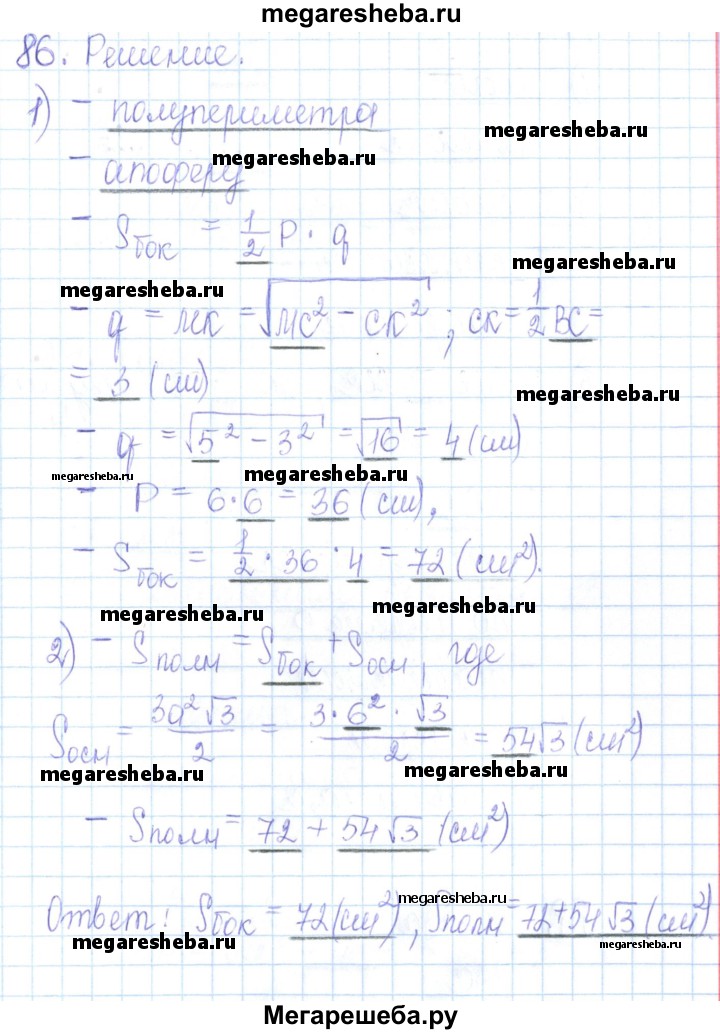 megaresheba.ru
86. Решение.
1) – полупериметра
megaresheba.ru
megaresheba.ru
– апоферу
– Sбок = 1/2 P · q
megaresheba.ru
megaresheba.ru
– q = МК = √(МС² – СК²) ; СК = 1/2 ВС =
= 3 (см)
megaresheba.ru
– q = √(5² – 3²) = √16 = 4 (см)
megaresheba.ru
megaresheba.ru
– P = 6 · 6 = 36 (см),
– Sбок = 1/2 · 36 · 4 = 72 (см²).
megaresheba.ru
megaresheba.ru
2) – Sполн = Sбок + Sосн, где
Sосн = 3a²√3/2 = 3·6²·√3/2 = 54√3 (см²)
megaresheba.ru
megaresheba.ru
– Sполн = 72 + 54√3 (см²)
megaresheba.ru
Ответ: Sбок = 72 (см²), Sполн = 72+54√3 (см²)
megaresheba.ru
megaresheba.ru
Мегарешеба.ру